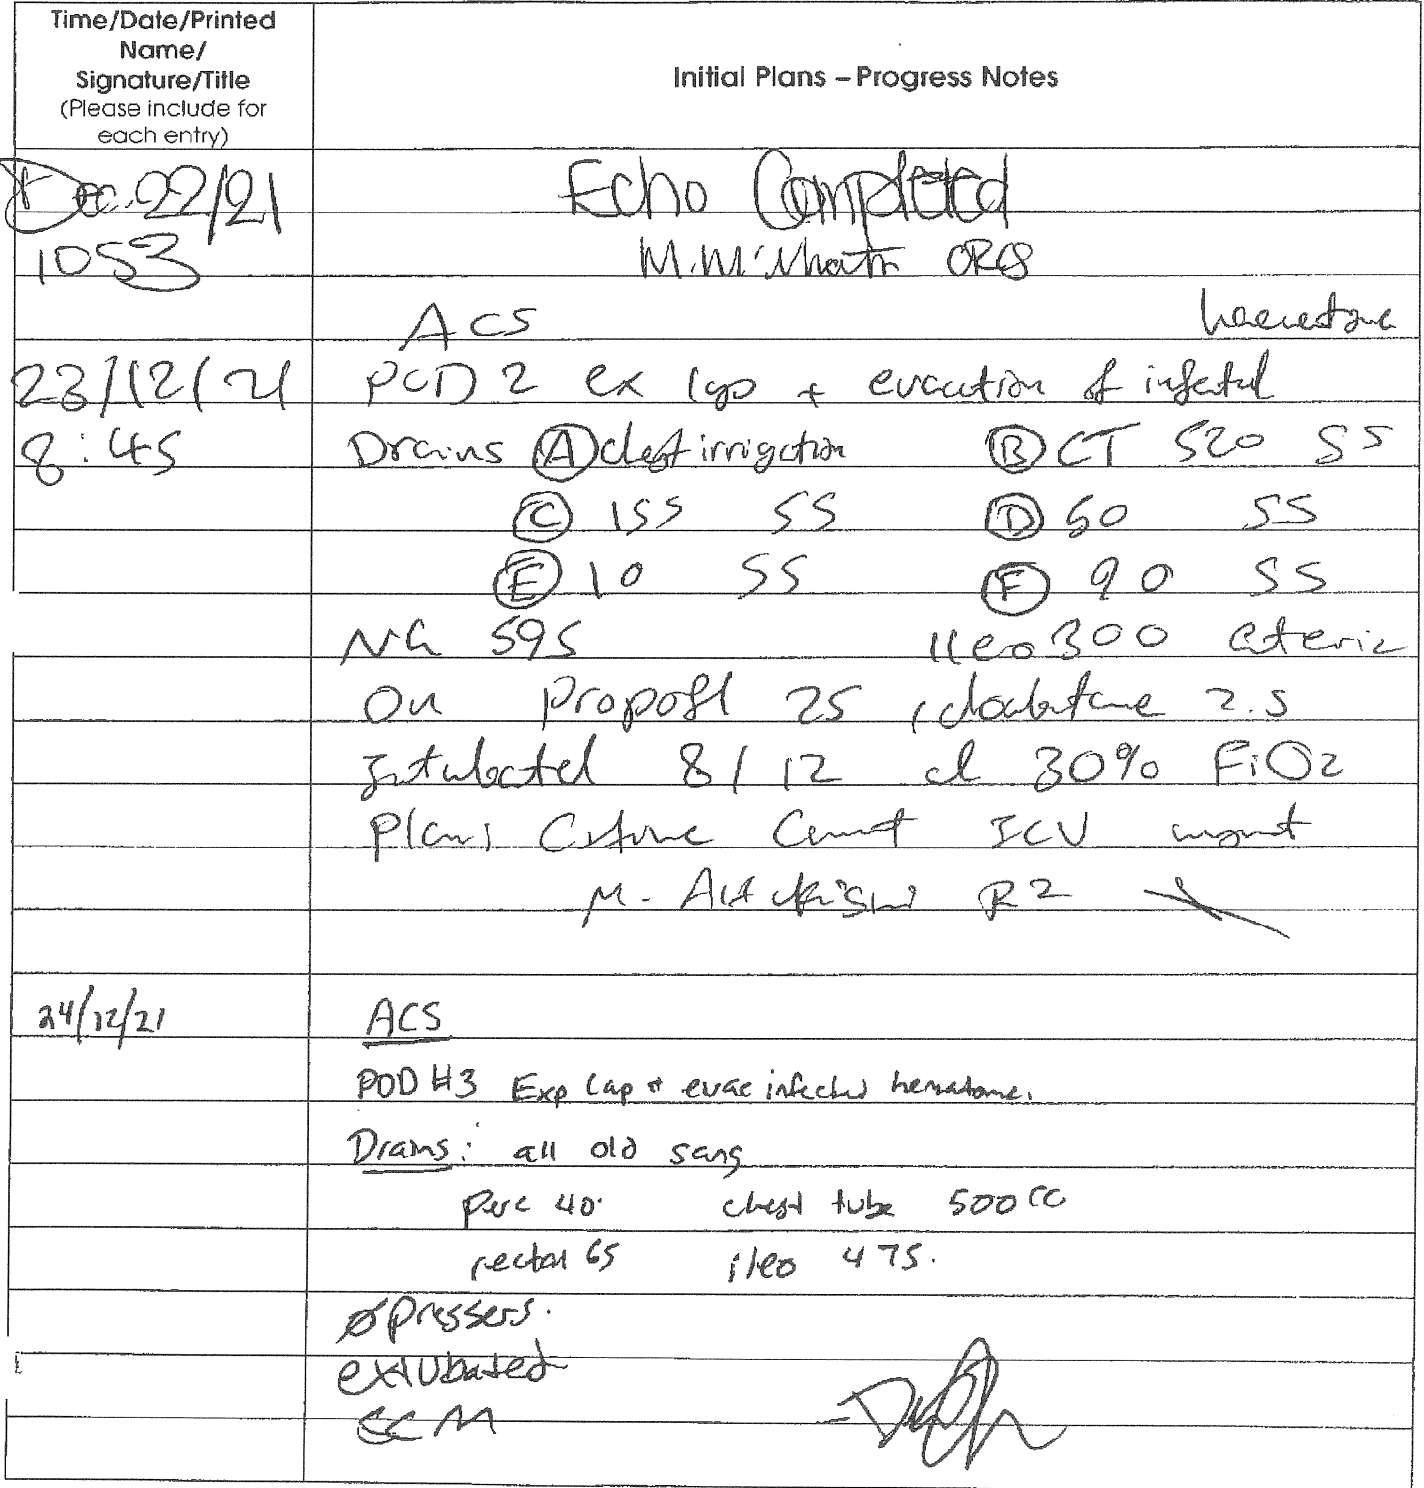 Time/Date/Printed
Name/
Signature/Title
(Please include for
each entry)
Initial Plans – Progress Notes
Dec 22/21 Echo Completed
1053 M.
ACS
23/12/21 POD 2 ex lap + evacution of infected
8:45 Drains Ⓐ chest irrigation Ⓑ CT 520 SS
Ⓒ 155 SS Ⓓ 50 SS
Ⓔ 10 SS Ⓕ 90 SS
NG 595 Ileo 300 enteric
On Propofl 25, 2.5
Intubated 8/12 30% FiO2
Plan: ICU mgmt
M. R2
24/12/21 ACS
POD #3 Exp lap + evac infected hematoma.
Drains: all old sang
perc 40. chest tube 500cc
rectal 65 ileo 475.
Ø pressers.
extubated